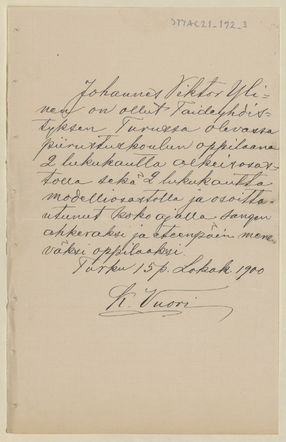 Johannes Viktor Yli-
nen on ollut Taideyhdis-
tyksen Turussa olevassa
piirustuskoulun oppilaana
2 lukukautta alkeisosas-
tolla sekä 2 lukukautta
modelliosastolla ja osoitta-
utunut koko ajalla sangen
ahkeraksi ja eteenpäin mene-
väksi oppilaaksi.
Turku 15 p. Lokak. 1900
V. Vuori